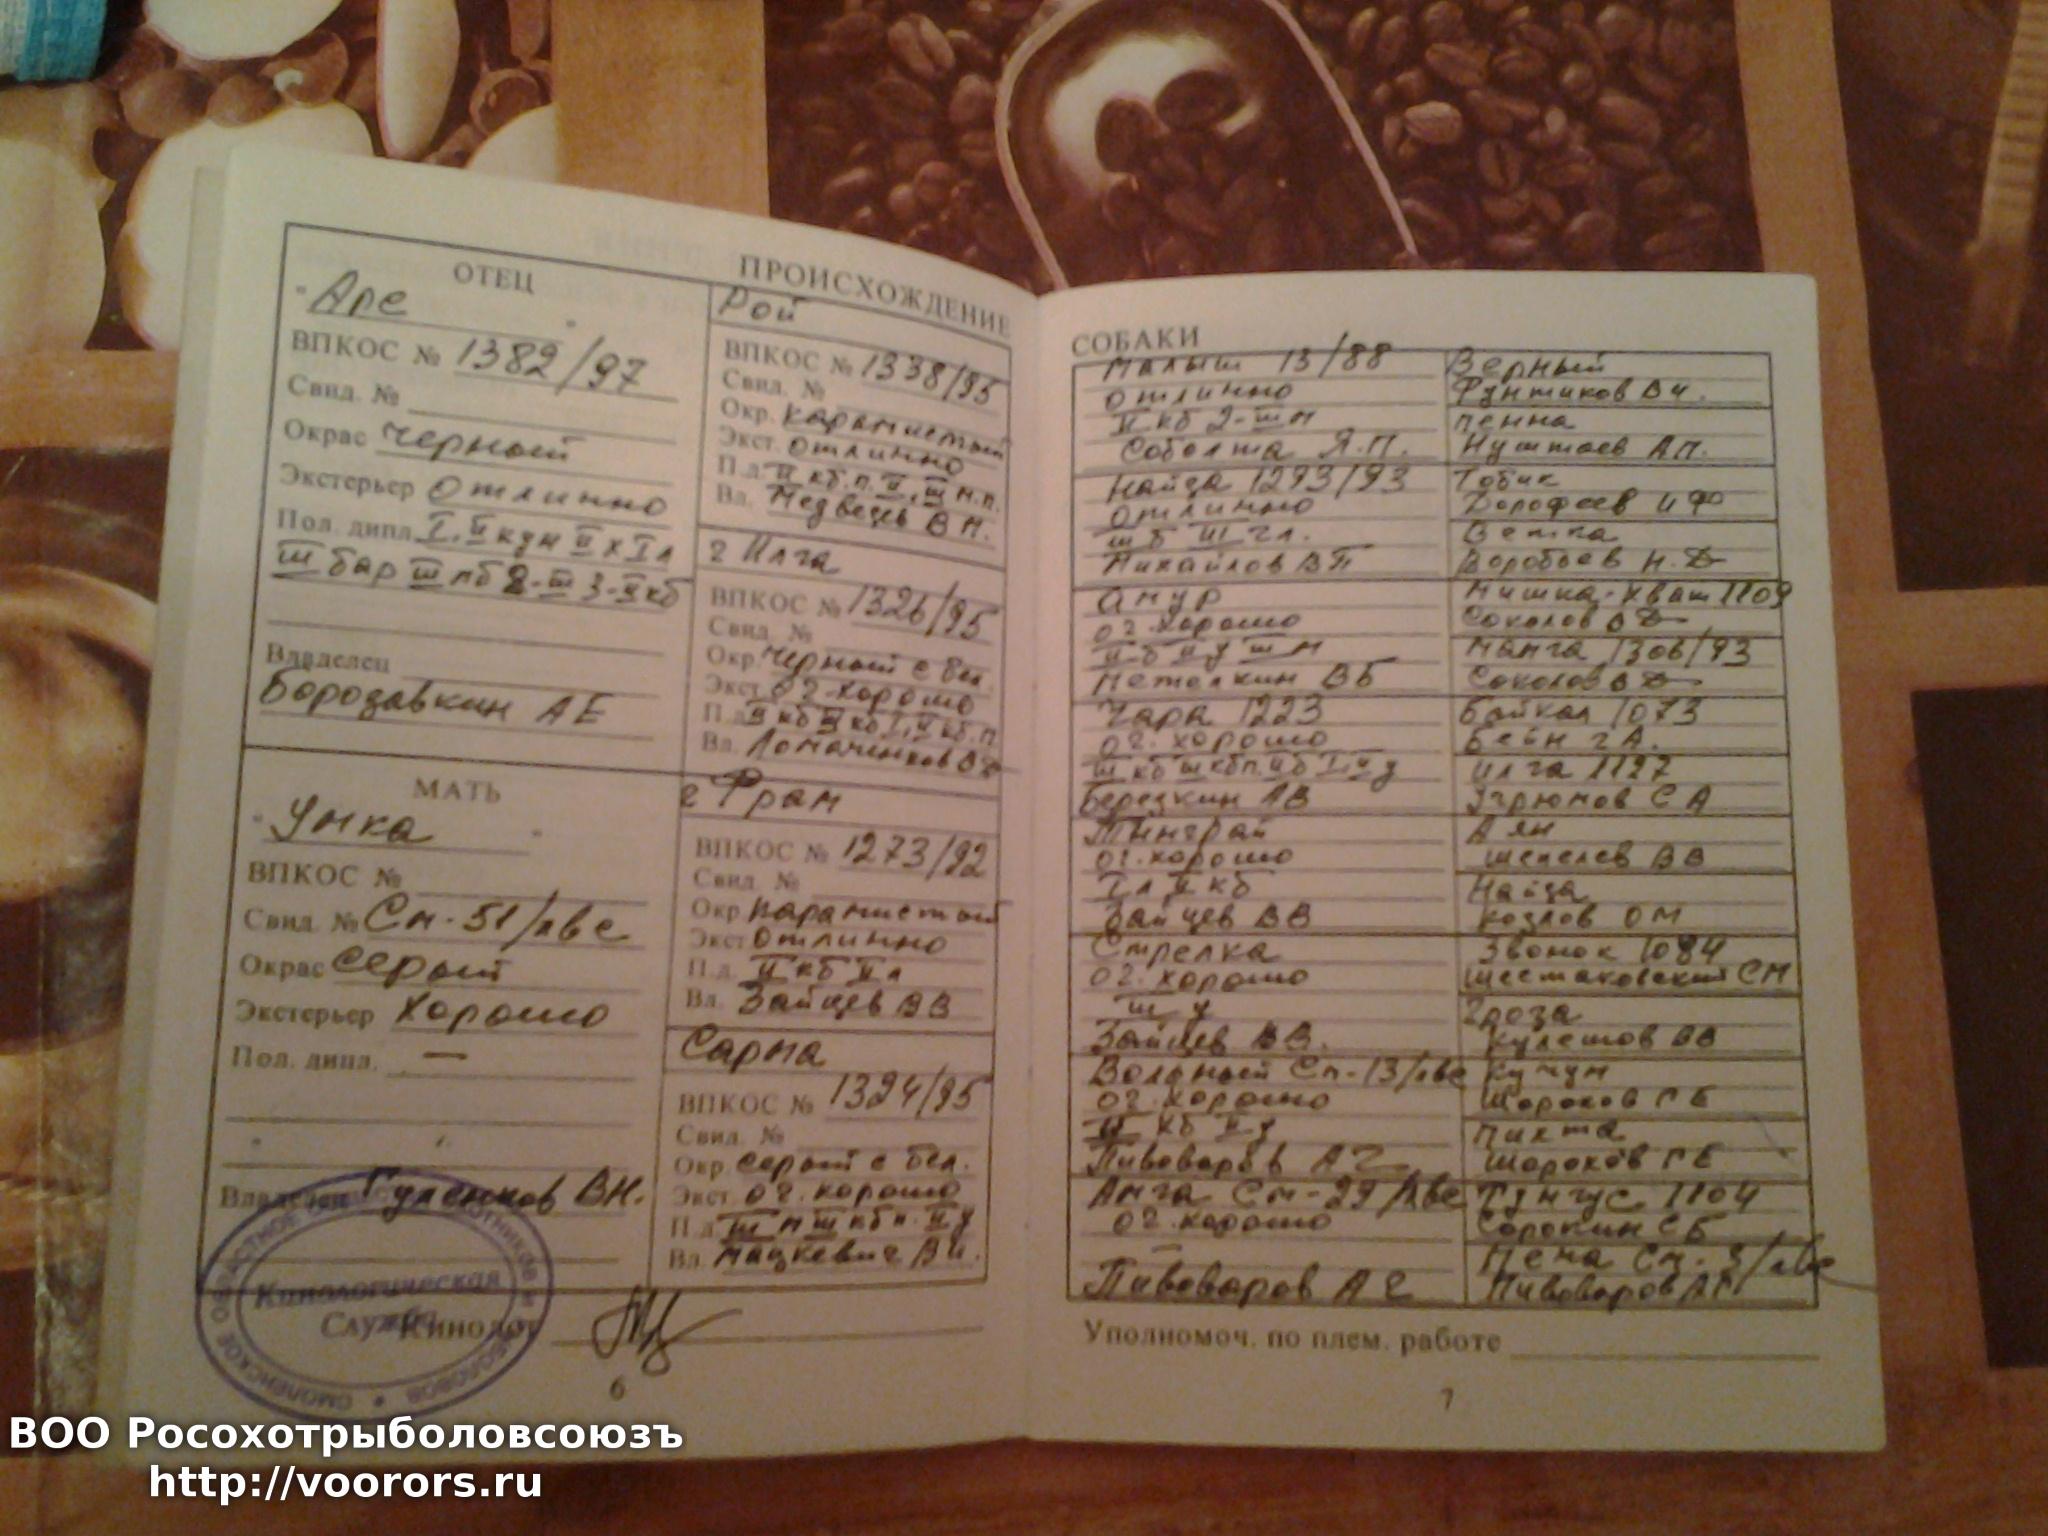 ПРОИСХОЖДЕНИЕ
ОТЕЦ
Арс
ВПКОС № 1382/97
Свид. №
Окрас черный
Экстерьер отлично
Пол. дипл. I, II кун II х I л
III бар III пб 2-III 3-II кб
Владелец
Бородавкин АЕ
МАТЬ
Умка
ВПКОС №
Свид. № См-51/лвс
Окрас серый
Экстерьер хорошо
Пол. дипл. —
Владелец Гуленков ВН.
Кинологическая
Служба
Кинолог
6
Рой
ВПКОС № 1338/95
Свид. №
Окр. карамистый
Экст. отлично
П.д. II кб.п. II, III м.п.
Вл. Медведев В Н.
г Илга
ВПКОС № 1326/95
Свид. №
Окр. черный с бел.
Экст. оч. хорошо
П.д. II кб II кб I, II кб.п.
Вл. Ломаченков В
г Фрам
ВПКОС № 1273/92
Свид. №
Окр. карамистый
Экст. отлично
П.д. II кб II л
Вл. Зайцев ВВ
Сарма
ВПКОС № 1324/95
Свид. №
Окр. серый с бел.
Экст. оч. хорошо
П.д. III м III кб п. II у
Вл. Мацкевич В И.
СОБАКИ
Малыш 13/88
отлично
II кб 2-III м
Соболта Я.П.
Найда 1293/93
отлично
III б III гл.
Михайлов ВП
Амур
оч. хорошо
II б II у III м
Метелкин ВБ
Чара 1223
оч. хорошо
III кб III кбп. II б I, II у
Березкин АВ
Тынграй
оч. хорошо
I л II кб
Зайцев ВВ
Стрелка
оч. хорошо
III у
Зайцев ВВ.
Вольный См-13/лвс
оч. хорошо
III кб II у
Пивоваров А Г
Анга См-29/лвс
оч. хорошо
—
Пивоваров А Г
Верный
Фунтиков ВИ.
Пенна
Нуштаев АП.
Тобик
Дорофеев ИФ
Ветка
Воробьев Н.Ф
Мишка-Хват 1109
Соколов В
Манга 1306/93
Соколов В
Байкал 1073
Бейн г А.
Илга 1127
Угрюмов С А
Аян
Шепелев ВВ
Найда
Козлов ОМ
Звонок 1084
Шестаковский СМ
Гроза
Кулешов ВВ
Кучум
Шорохов ГЕ
Пихта
Шорохов ГЕ
Тунгус 1104
Сорокин СБ
Пема См-3/лвс
Пивоваров АГ
Уполномоч. по плем. работе
7
ВОО Росохотрыболовсоюзъ
http://voorors.ru